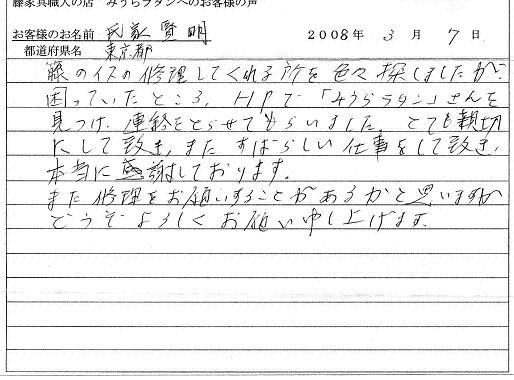 藤家具職人の店　みうらラタンへのお客様の声
お客様のお名前　氏家 賢明　2008年 3 月 7 日
都道府県名　東京都
籐のイスの修理してくれる所を色々探しましたが、
困っていたところ、HPで「みうらラタン」さんを
見つけ、連絡をとらせてもらいました。とても親切
にして頂き、また すばらしい仕事をして頂き、
本当に感謝しております。
また修理をお願いすることがあるかと思いますが
どうぞよろしくお願い申し上げます。